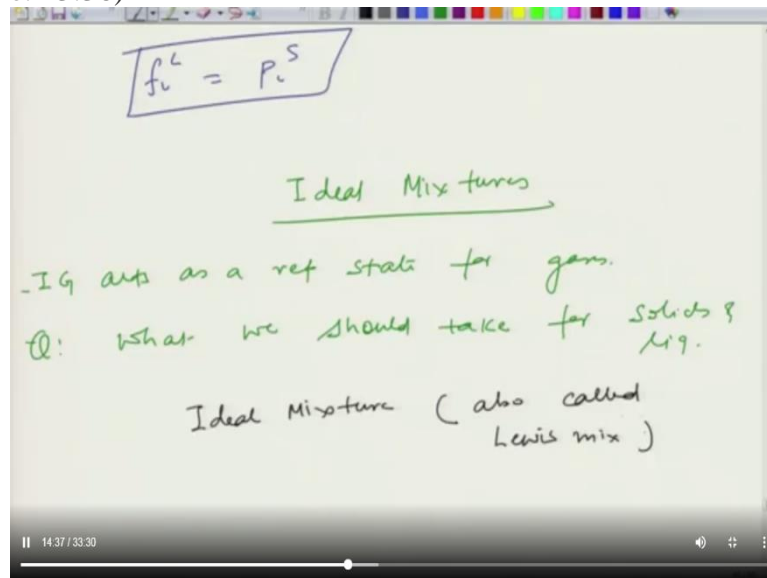 f_i^L = P_i^S
Ideal Mixtures
- IG acts as a ref state for gases.
Q: What we should take for solids &
liq.
Ideal Mixture (also called
Lewis mix)
14:37 / 33:30